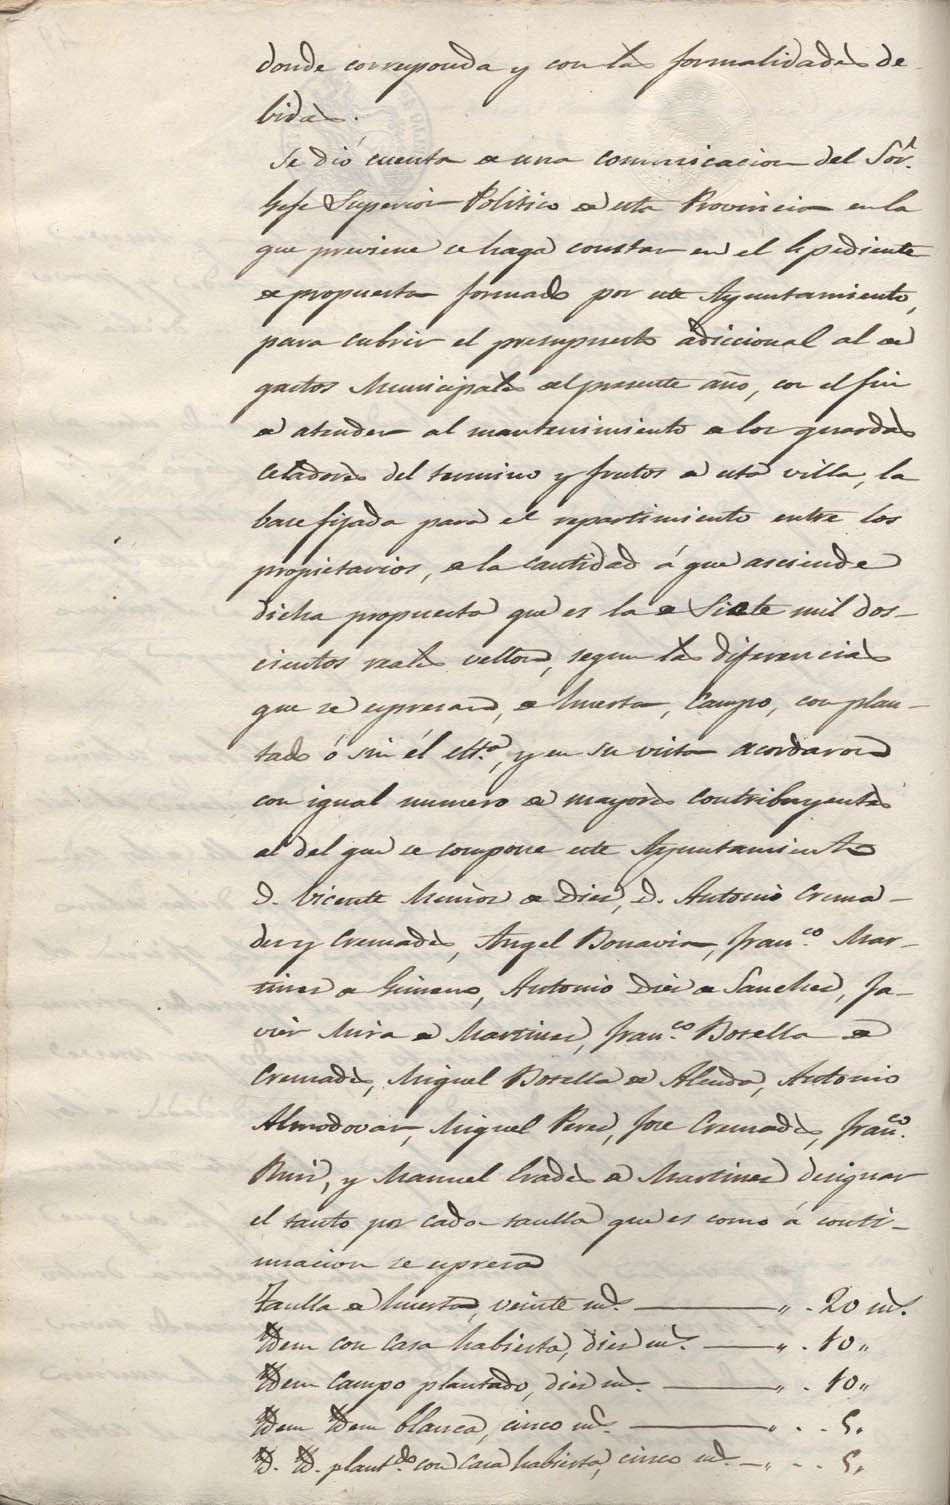 donde corresponda y con las formalidades de
bidas.
Se dió cuenta de una comunicacion del Sor.
Gefe Superior Politico de esta Provincia en la
que previene se haga constar en el Espediente
de propuesta formado por este Ayuntamiento,
para cubrir el presupuesto adiccional al de
gastos Municipales del presente año, con el fin
de atender al mantenimiento de los guardas
Celadores del termino y frutos de esta villa, la
base fijada para el repartimiento entre los
propietarios, de la cantidad á que asciende
dicha propuesta que es la de Siete mil dos-
cientos reales vellon, segun las diferencias
que se espresan, de huerta, Campo, con plan-
tado ó sin él etta., y en su vista acordaron
con igual numero de mayores contribuyentes
al del que se compone este Ayuntamiento
D. Vicente Muñoz de Dies, D. Antonio Crema-
des y Cremades, Angel Bonavia, Franco. Mar-
tines de Gimeno, Antonio Dies de Sanches, Ja-
vier Mira de Martines, Franco. Botella de
Cremades, Miguel Botella de Alenda, Antonio
Almodovar, Miguel Peres, Jose Cremades, Franco.
Ruis, y Manuel Erades de Martines designar
el tanto por cada taulla que es como á conti-
nuacion se espresa
Taulla de huerta, veinte ms. ——— " . 20 ms.
Ydem con casa habierta, dies ms. ——— " . 10 "
Ydem Campo plantado, dies ms. ——— " . 10 "
Ydem Ydem blanca, cinco ms. ——— " . . 5 "
Yd. Yd. plantdo. con casa habierta, cinco ms. — " . . 5 "